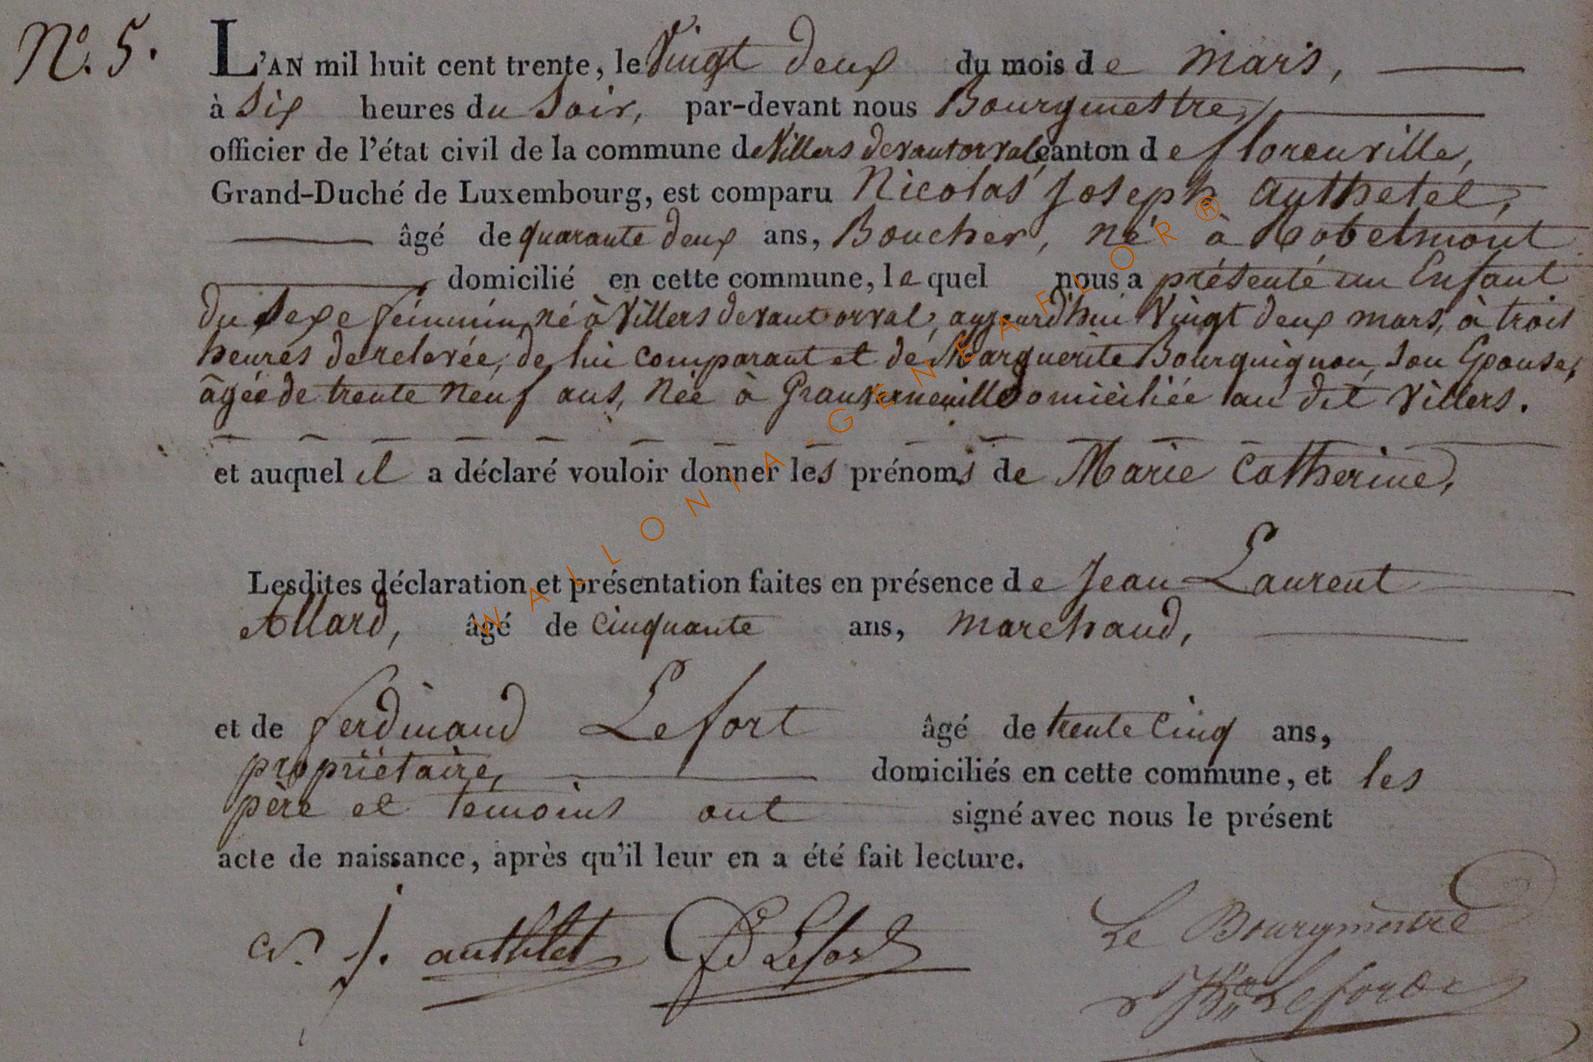 N.° 5.
L'AN mil huit cent trente, le Vingt deux du mois de mars,
à Six heures du Soir, par-devant nous Bourgmestre,
officier de l'état civil de la commune de Villers devant orval, canton de florenville,
Grand-Duché de Luxembourg, est comparu Nicolas Joseph authelet,
âgé de quarante deux ans, Boucher, né à Robelmont
domicilié en cette commune, le quel nous a présenté un Enfant
du Sexe féminin, né à Villers devant orval, aujourd'hui Vingt deux mars, à trois
heures de relevée, de lui comparant et de Marguerite Bourguignon, Son Epouse,
âgée de trente neuf ans, Née à domiciliée au dit Villers.
et auquel il a déclaré vouloir donner les prénoms de Marie Catherine,
Lesdites déclaration et présentation faites en présence de Jean Laurent
Allard, âgé de cinquante ans, marchand,
et de ferdinand Lefort âgé de trente cinq ans,
propriétaire, domiciliés en cette commune, et les
père et témoins ont signé avec nous le présent
acte de naissance, après qu'il leur en a été fait lecture.
N. J. authlet fd Lefort Le Bourgmestre
Lefort
WALLONIA-GENEAFLOR®